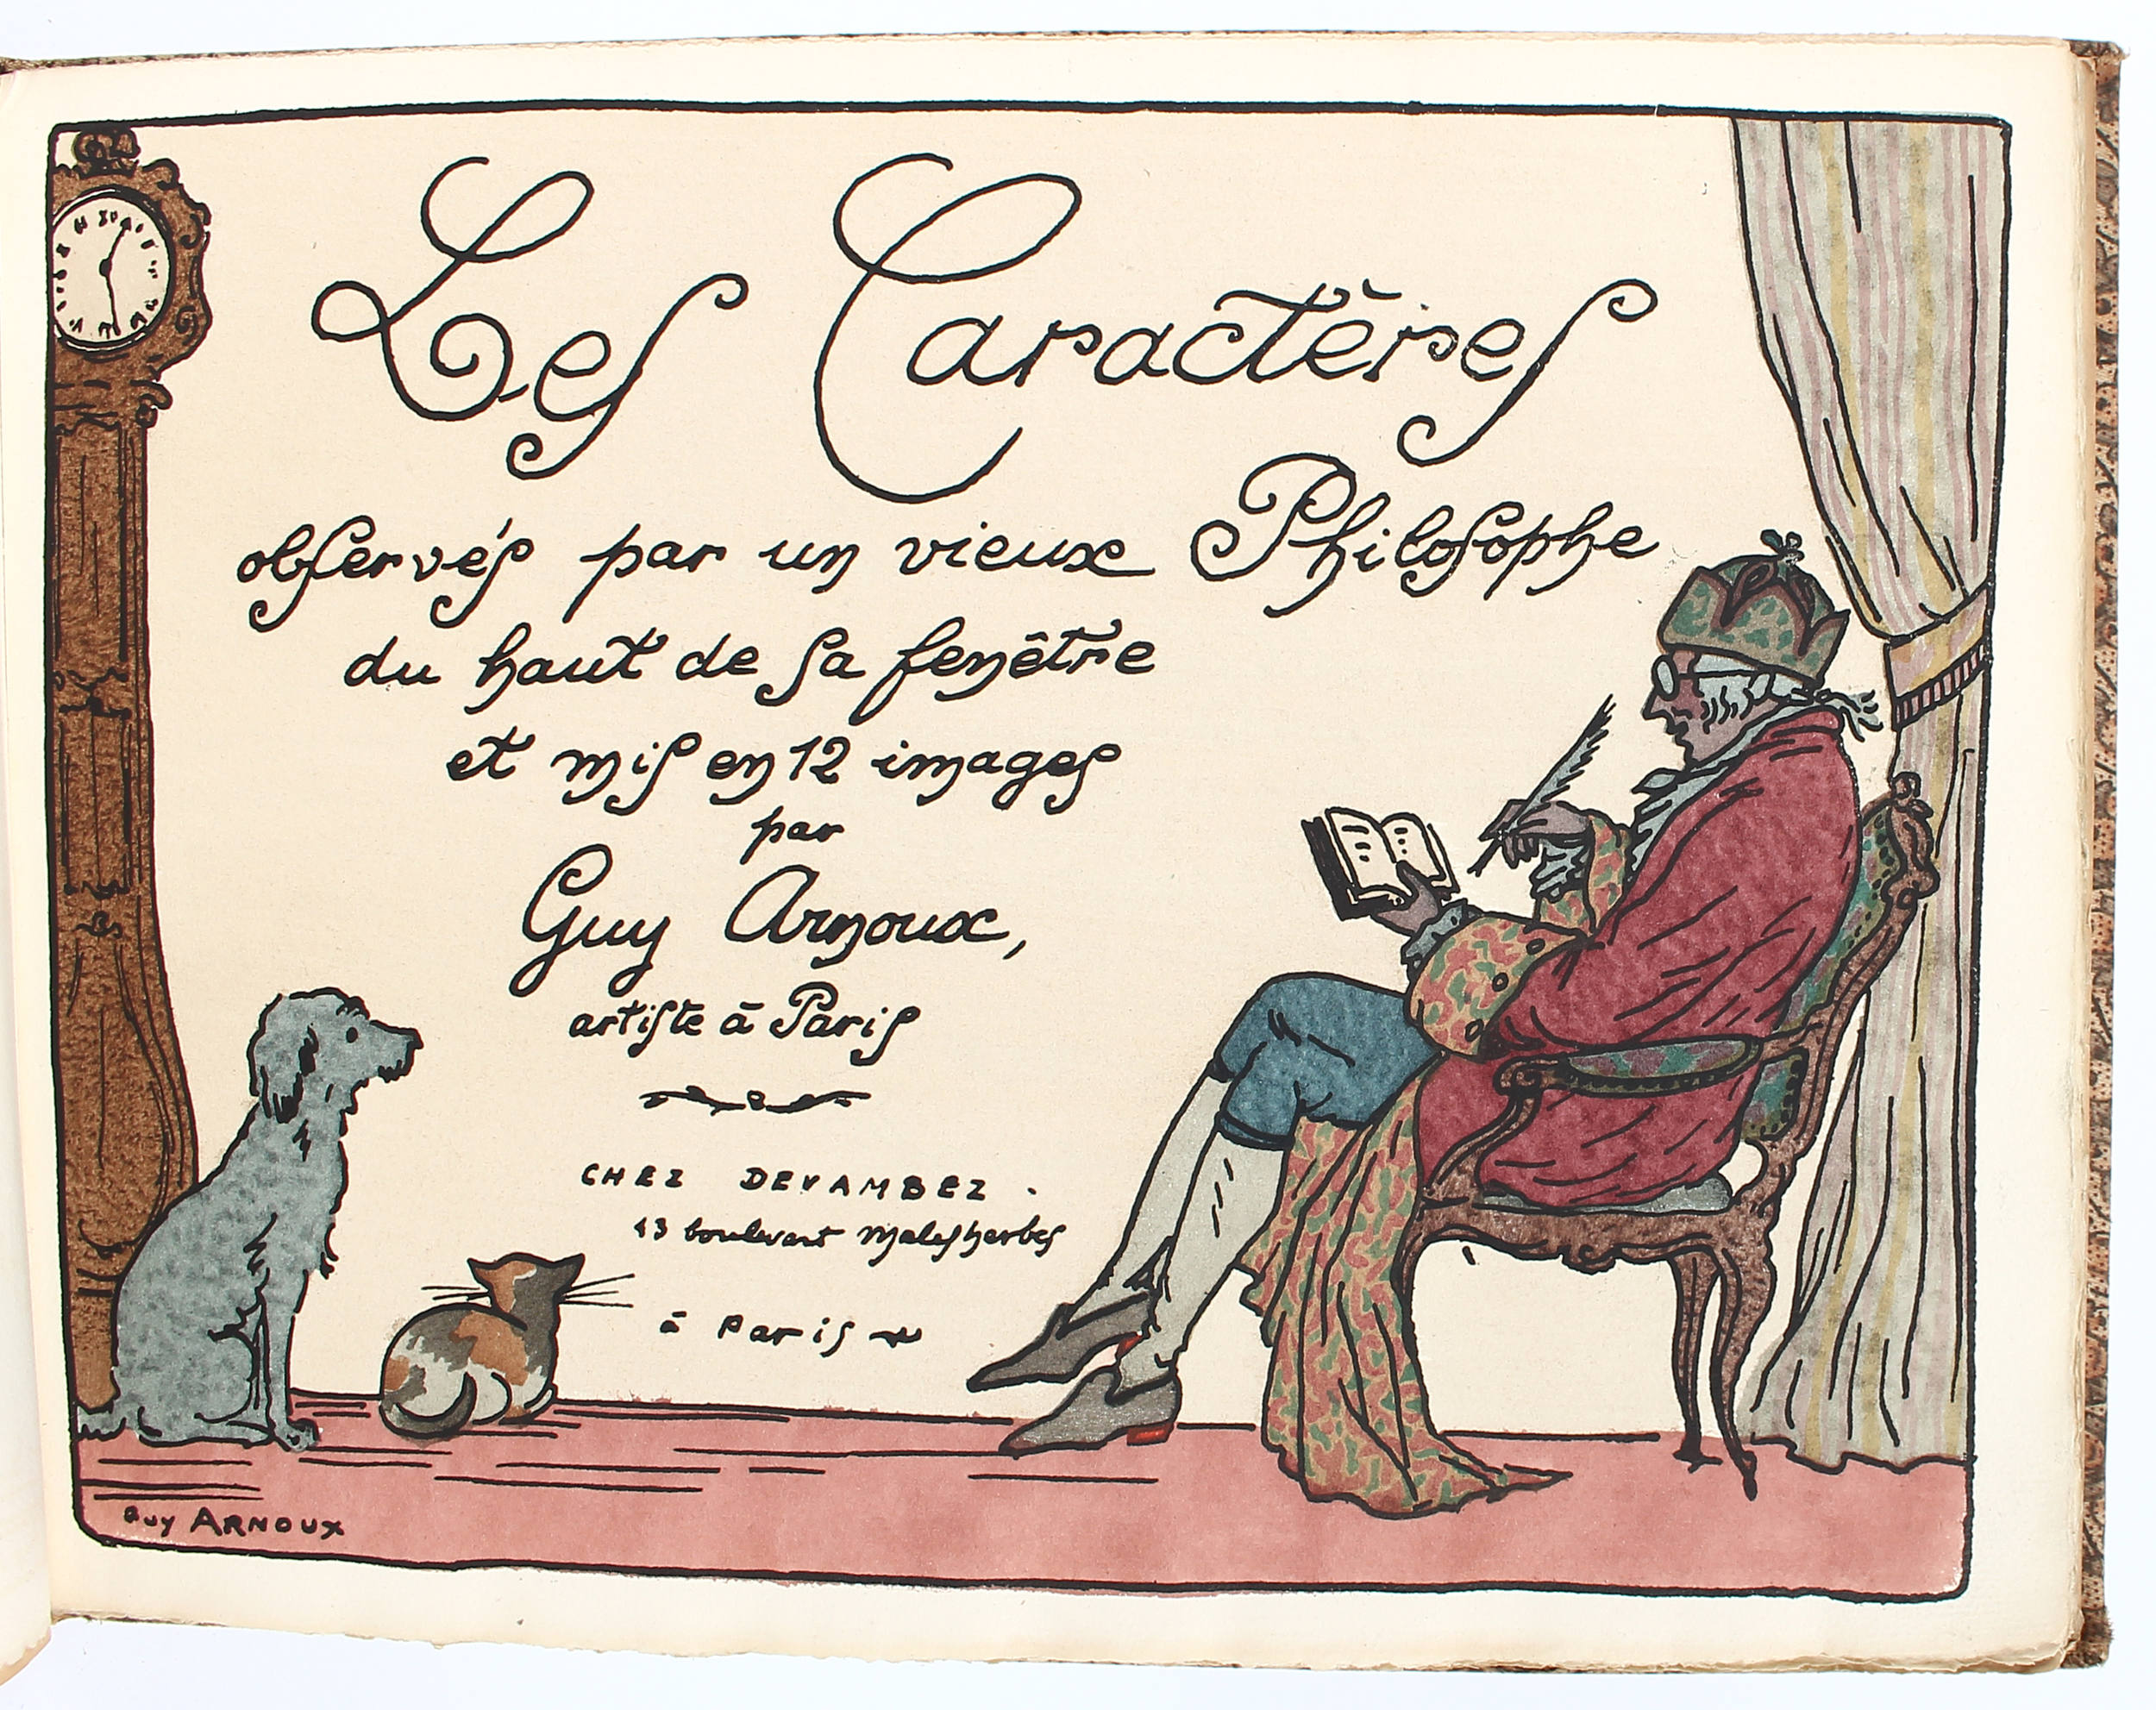 Les Caractères
observés par un vieux Philosophe
du haut de sa fenêtre
et mis en 12 images
par
Guy Arnoux,
artiste à Paris
CHEZ DEVAMBEZ.
43 boulevart Malesherbes
à Paris
Guy ARNOUX